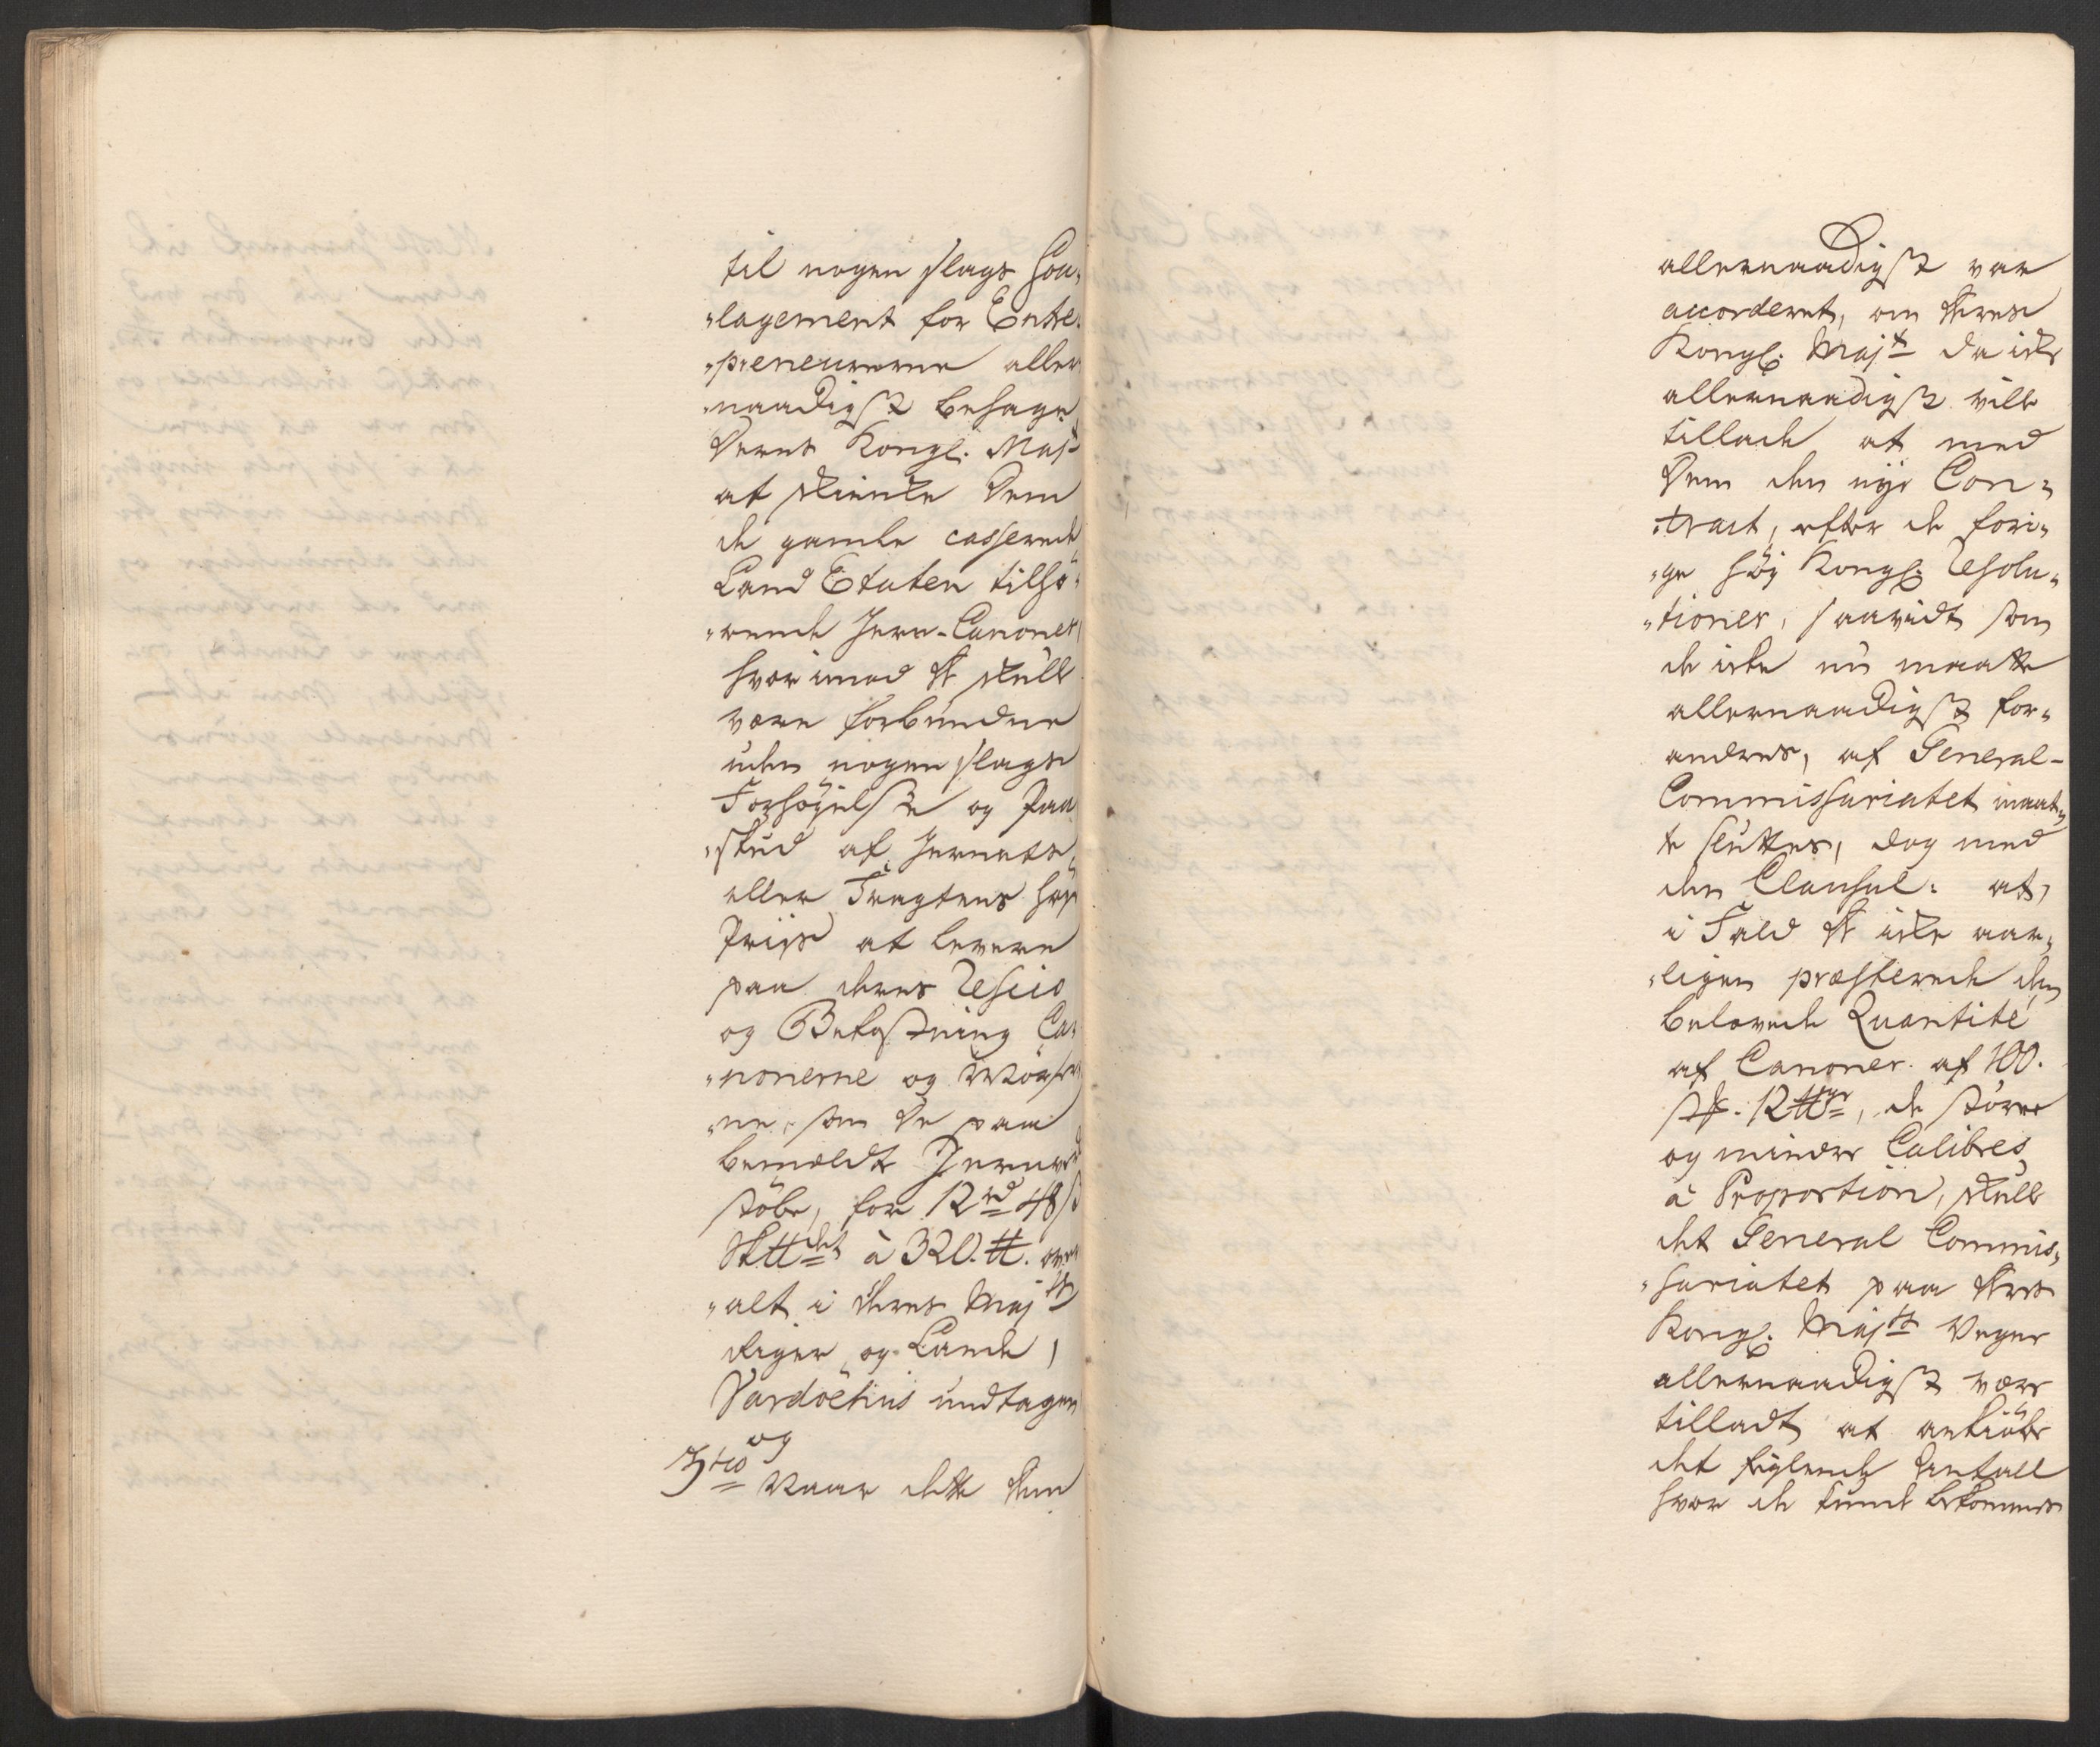 til nogen slags Sou-
"lagement for Entre-
"preneurerne aller
"naadigst behage
Deres Kongl. Majt
at skienke dem
de gamle casserede
Land Etaten tilhø-
"rende Jern-Canoner
hvorimod de skulle
være forbundne
uden nogen slags
Forhøyelse og Paa-
"skud af Jernets
eller Fragtens høye
Priis at levere
paa deres Resico
og Bekostning Ca-
"nonerne og Mörser-
"ne, som de paa
bemeldte Jernverk
støbe, for 12 rd 48 s
Sk℔det à 320. ℔. over-
"alt i Deres Majts
Riger og Lande,
Vardöehuus undtagen
og
3tio Naar dette dem
allernaadigst var
accorderet, om Deres
Kongl. Majt da icke
allernaadigst ville
tillade at med
dem den nye Con-
"tract, efter de fori-
"ge høy Kongl. Resolu-
"tioner, saavidt som
de icke nu maatte
allernaadigst for-
andres, af General-
Commissariatet maat-
te sluttes, dog med
den Clausul: at,
i Fald de icke aar-
"ligen præsterede den
belovede Quantité
af Canoner af 100.
st. 12 ℔ger, de større
og mindre Calibres
à Proportion, skulle
det General Commis-
"sariatet paa Deres
Kongl. Majts Vegne
allernaadigst være
tilladt at ankiøbe
det feylende Antall
hvor de kunde bekommes